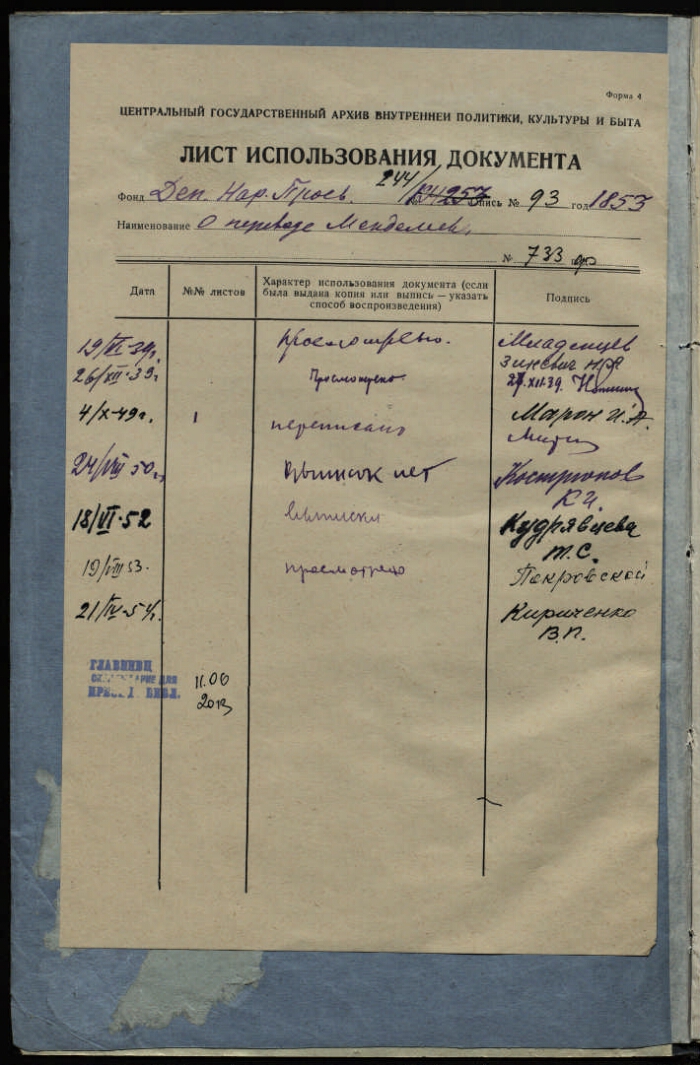 Форма 4
ЦЕНТРАЛЬНЫЙ ГОСУДАРСТВЕННЫЙ АРХИВ ВНУТРЕННЕЙ ПОЛИТИКИ, КУЛЬТУРЫ И БЫТА
ЛИСТ ИСПОЛЬЗОВАНИЯ ДОКУМЕНТА
Фонд Деп. Нар. Просв. 244/ 257 пись № 93 год 1853
Наименование О переводе Менделеев.
№ 733
Дата №№ листов Характер использования документа (если была выдана копия или выпись — указать способ воспроизведения) Подпись
19/VI-39г. просмотрено. Младенцев
26/XII-39г. Просмотрено Зиневич
27.XII.39.
4/X-49г. 1 переписано Марон И.А.
24/VIII 50г. выписок нет Костриков К.И.
18/VI-52 выписки Кудрявцева Т.С.
19/VIII 53. просмотрено Покровской
21/IV-54г. Кириченко В.П.
ГЛАВНИИП
11.06
2012